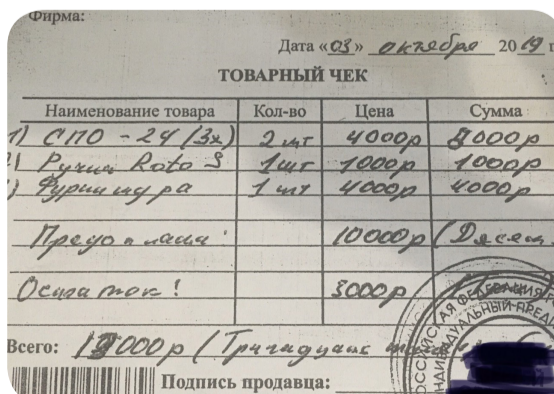 Фирма:
Дата «03» октября 2019 г
ТОВАРНЫЙ ЧЕК
Наименование товара Кол-во Цена Сумма
1) СПО - 24 (3х) 2 шт 4000р 8000р
2) Ручки Roto S 1 шт 1000р 1000р
) Фурнитура 1 шт 4000р 4000р
Предоплата: 10000р (Десят
Остаток! 3000р
Всего: 13000р (Тринадцать
Подпись продавца:
РОССИЙСКАЯ ФЕДЕРАЦИЯ